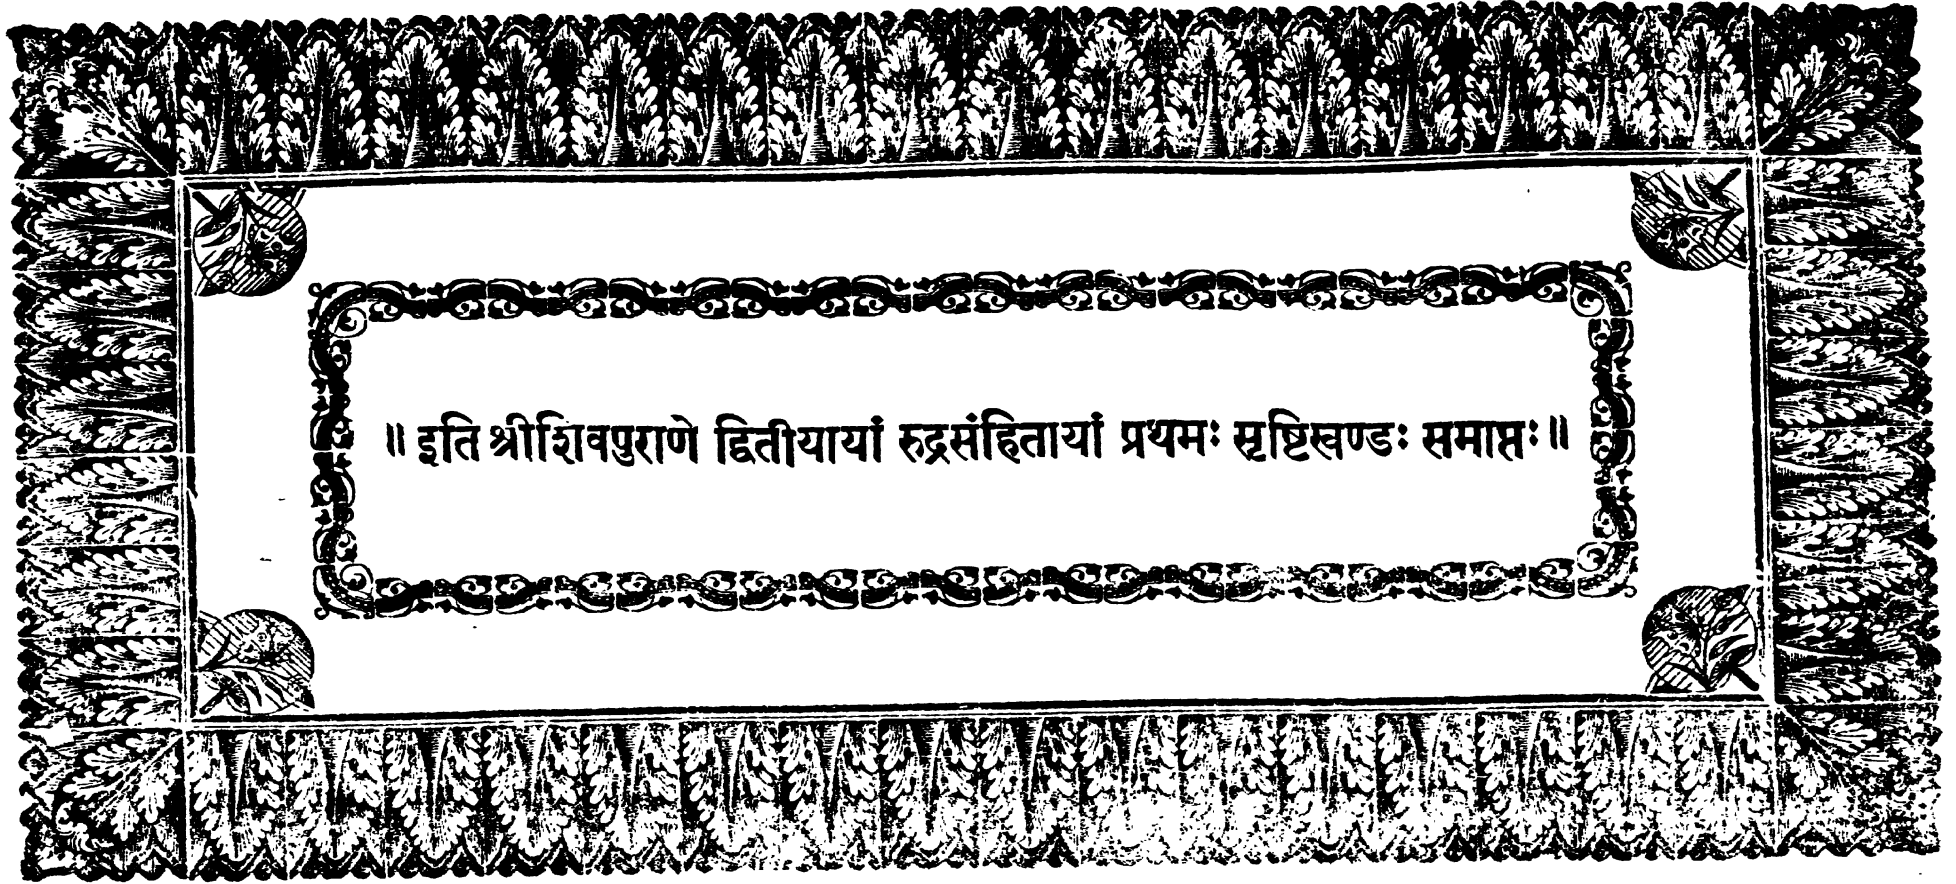 ॥ इति श्रीशिवपुराणे द्वितीयायां रुद्रसंहितायां प्रथमः सृष्टिखण्डः समाप्तः॥